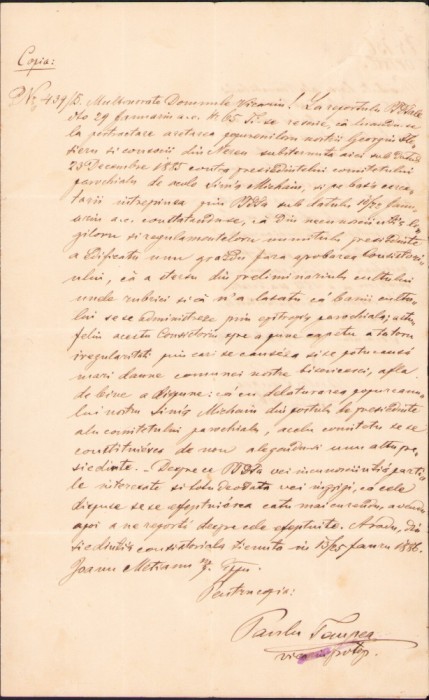 Copia:
Nr. 439/B. Multu onorate Domnule Vicariu! La reportulu PTale
dto 29 Januariu a.c. Nr 65 Ti. se
la pertractare acusarea poporenilor nostrii Georgiu
si consorii din subternuta aici sub datul
23 Decembre 1885 contra presiedintelui comitetului
parochialu de acolo Siniţ Michaiu, si pe basa cerce-
tarii intreprinsa prin PTDta sub datulu
ariu a.c. constatandu-se, că Din necunoscinti'a le-
giloru si regulamenteloru numitulu presiedinte
a edificatu unu grajdiu fara aprobarea Consistori-
ului, că a stersu din preliminariulu cultului
unele rubrici si că n'a lasatu ca banii cultu-
lui se se administreze prin epitropi'a parochiala; astu-
feliu acestu Consistoriu spre a pune capetu a toturor
irregularitati prin cari se causéza si se potu causá
mari daune comunei nostre bisericesci, afla
de bine a dispune: că cu delaturarea poporeanu-
lui nostru Siniţ Michaiu din postulu de presiedinte
alu comitetului parochialu, acelu comitetu se se
constituiéves de nou alegandu-si unu altu pre-
siedinte. Despre ce PTDta vei incunosciintiá parti-
le interesate si totu deodata vei ingrigi, că cele
dispuse se se efeptuiésca catu mai curendu, avendu
apoi a ne reportá despre cele efeptuite. Aradu, din
siedinti'a consistoriala tienuta in 13/25 Januariu 1886.
Joanu Metianu m.p. Eppu.
Pentru copia:
Paulu Tempea